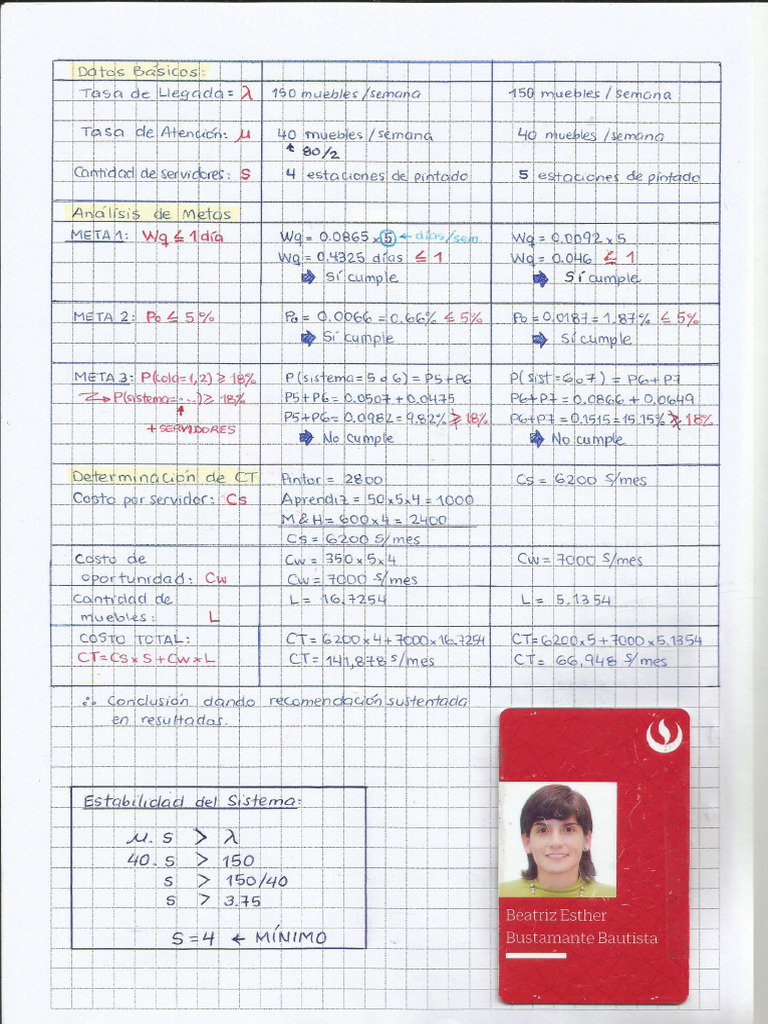 Datos Básicos:
Tasa de Llegada = λ 150 muebles/semana 150 muebles/semana
Tasa de Atención: μ 40 muebles/semana 40 muebles/semana
80/2
Cantidad de servidores: S 4 estaciones de pintado 5 estaciones de pintado
Análisis de Metas
META 1: Wq ≤ 1 día Wq = 0.0865 x 5 ← días/sem Wq = 0.0092 x 5
Wq = 0.4325 días ≤ 1 Wq = 0.046 ≤ 1
Sí cumple Sí cumple
META 2: Po ≤ 5% Po = 0.0066 = 0.66% ≤ 5% Po = 0.0187 = 1.87% ≤ 5%
Sí cumple Sí cumple
META 3: P(cola=1,2) ≥ 18% P(sistema = 5 o 6) = P5+P6 P(sist = 6 o 7) = P6+P7
P(sistema=...) ≥ 18% P5+P6 = 0.0507 + 0.0475 P6+P7 = 0.0866 + 0.0649
+ SERVIDORES P5+P6 = 0.0982 = 9.82% ≱ 18% P6+P7 = 0.1515 = 15.15% ≱ 18%
No cumple No cumple
Determinación de CT Pintor = 2800 Cs = 6200 S/mes
Costo por servidor: Cs Aprendiz = 50x5x4 = 1000
M & H = 600x4 = 2400
Cs = 6200 S/mes
Costo de Cw = 350 x 5 x 4 Cw = 7000 S/mes
oportunidad: Cw Cw = 7000 S/mes
Cantidad de L = 16.7254 L = 5.1354
muebles: L
COSTO TOTAL: CT = 6200 x 4 + 7000 x 16.7254 CT = 6200 x 5 + 7000 x 5.1354
CT = Cs x S + Cw x L CT = 141,878 S/mes CT = 66,948 S/mes
∴ Conclusión dando recomendación sustentada
en resultados.
Estabilidad del Sistema:
μ. S > λ
40. S > 150
S > 150/40
S > 3.75
S = 4 ← MÍNIMO
Beatriz Esther
Bustamante Bautista